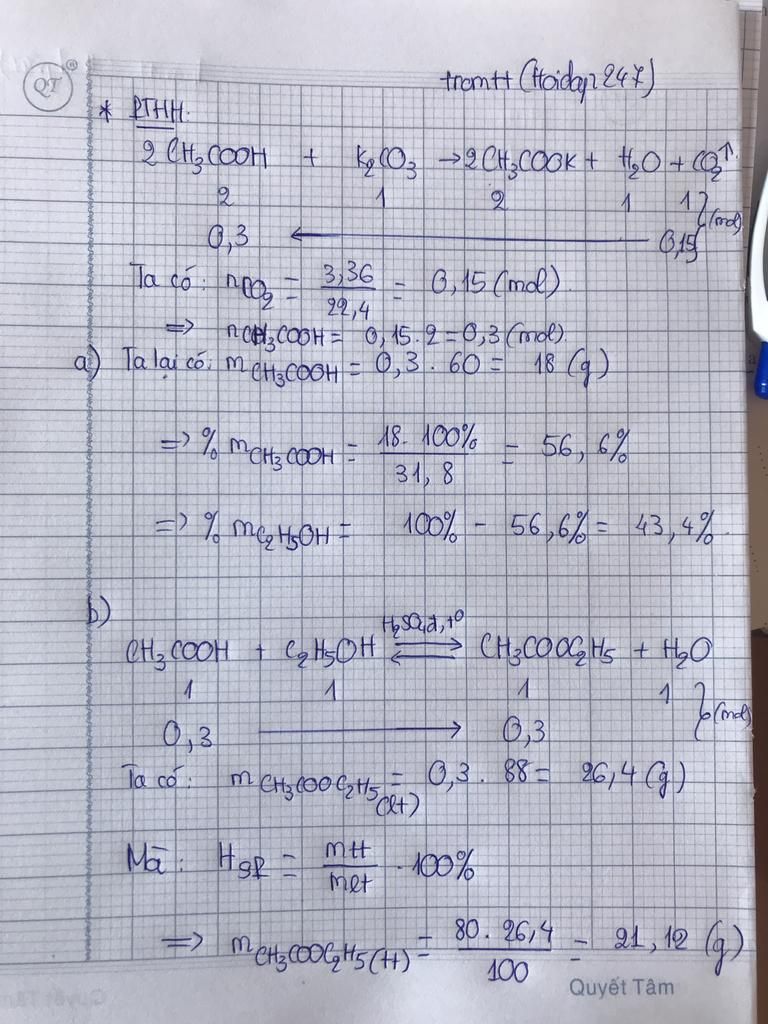 QT ®
tramtt (Hoidap247)
* PTHH:
2CH₃COOH + K₂CO₃ → 2CH₃COOK + H₂O + CO₂↑
2 1 2 1 1 (mol)
0,3 ← 0,15
Ta có: nCO₂ = 3,36/22,4 = 0,15 (mol).
=> nCH₃COOH = 0,15.2 = 0,3 (mol).
a) Ta lại có: mCH₃COOH = 0,3 . 60 = 18 (g)
=> % mCH₃COOH = 18. 100%/31,8 = 56,6%
=> % mC₂H₅OH = 100% - 56,6% = 43,4%.
b)
H₂SO₄đ, t°
CH₃COOH + C₂H₅OH ⇌ CH₃COOC₂H₅ + H₂O
1 1 1 1 (mol)
0,3 → 0,3
Ta có: mCH₃COOC₂H₅(lt) = 0,3 . 88 = 26,4 (g)
Mà: HSP = mtt/mlt . 100%
=> mCH₃COOC₂H₅(tt) = 80. 26,4/100 = 21,12 (g)
Quyết Tâm